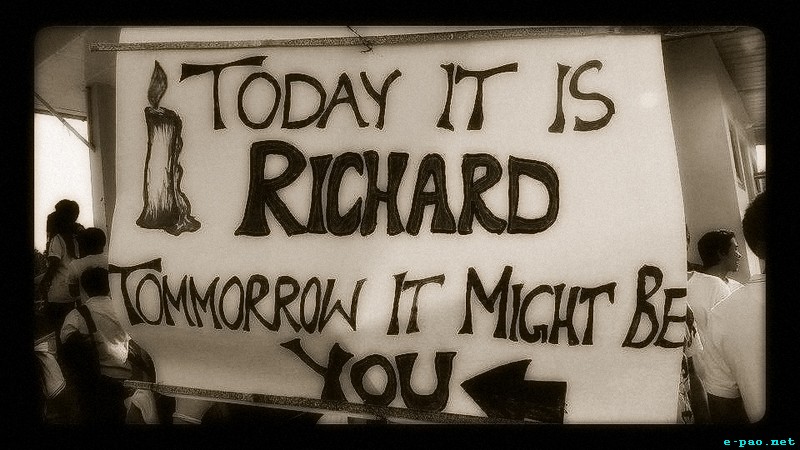 TODAY IT IS
RICHARD
TOMMORROW IT MIGHT BE
YOU
e-pao.net